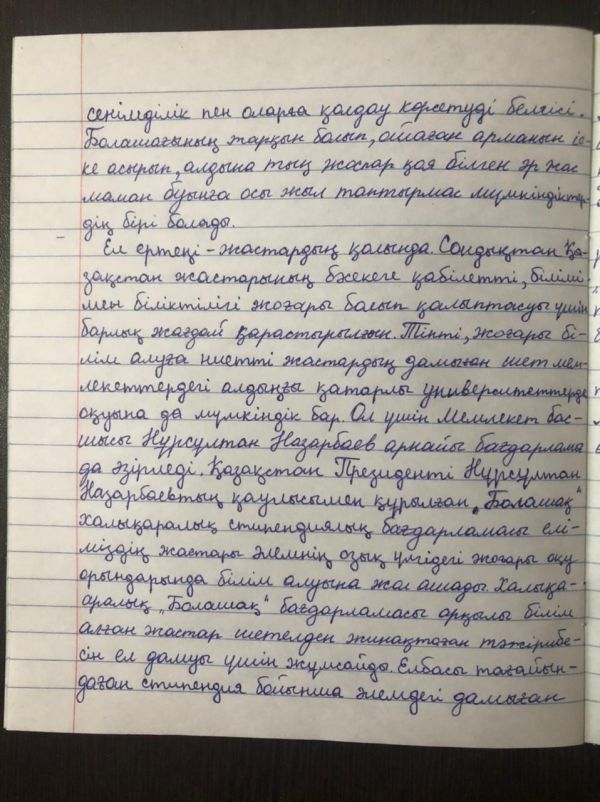 сенімділік пен оларға қолдау көрсетуді белгісі.
Болашағының жарқын болып, ойаған арманын іс-
ке асырып, алдына тың жоспар қоя білген әр жас
маман буынға осы жыл таптырмас мүмкіндіктер-
дің бірі болады.
Ел ертеңі - жастардың қолында. Сондықтан Қа-
зақстан жастарының бәсекеге қабілетті, білімі
мен біліктілігі жоғары болып қалыптасуы үшін
барлық жағдай қарастырылғын. Тіпті, жоғары бі-
лім алуға ниетті жастардың дамыған шет мем-
лекеттердегі алдыңғы қатарлы университеттерде
оқуына да мүмкіндік бар. Ол үшін Мемлекет бас-
шысы Нұрсұлтан Назарбаев арнайы бағдарлама
да әзірледі. Қазақстан Президенті Нұрсұлтан
Назарбаевтың қаулысымен құрылған „Болашақ“
халықаралық стипендиялық бағдарламасы елі-
міздің жастары әлемнің озық үлгідегі жоғары оқу
орындарында білім алуына жол ашады. Халықа-
аралық „Болашақ“ бағдарламасы арқылы білім
алған жастар шетелден жинақтаған тәжірибе-
сін ел дамуы үшін жұмсайды. Елбасы тағайын-
даған стипендия бойынша әлемдегі дамыған